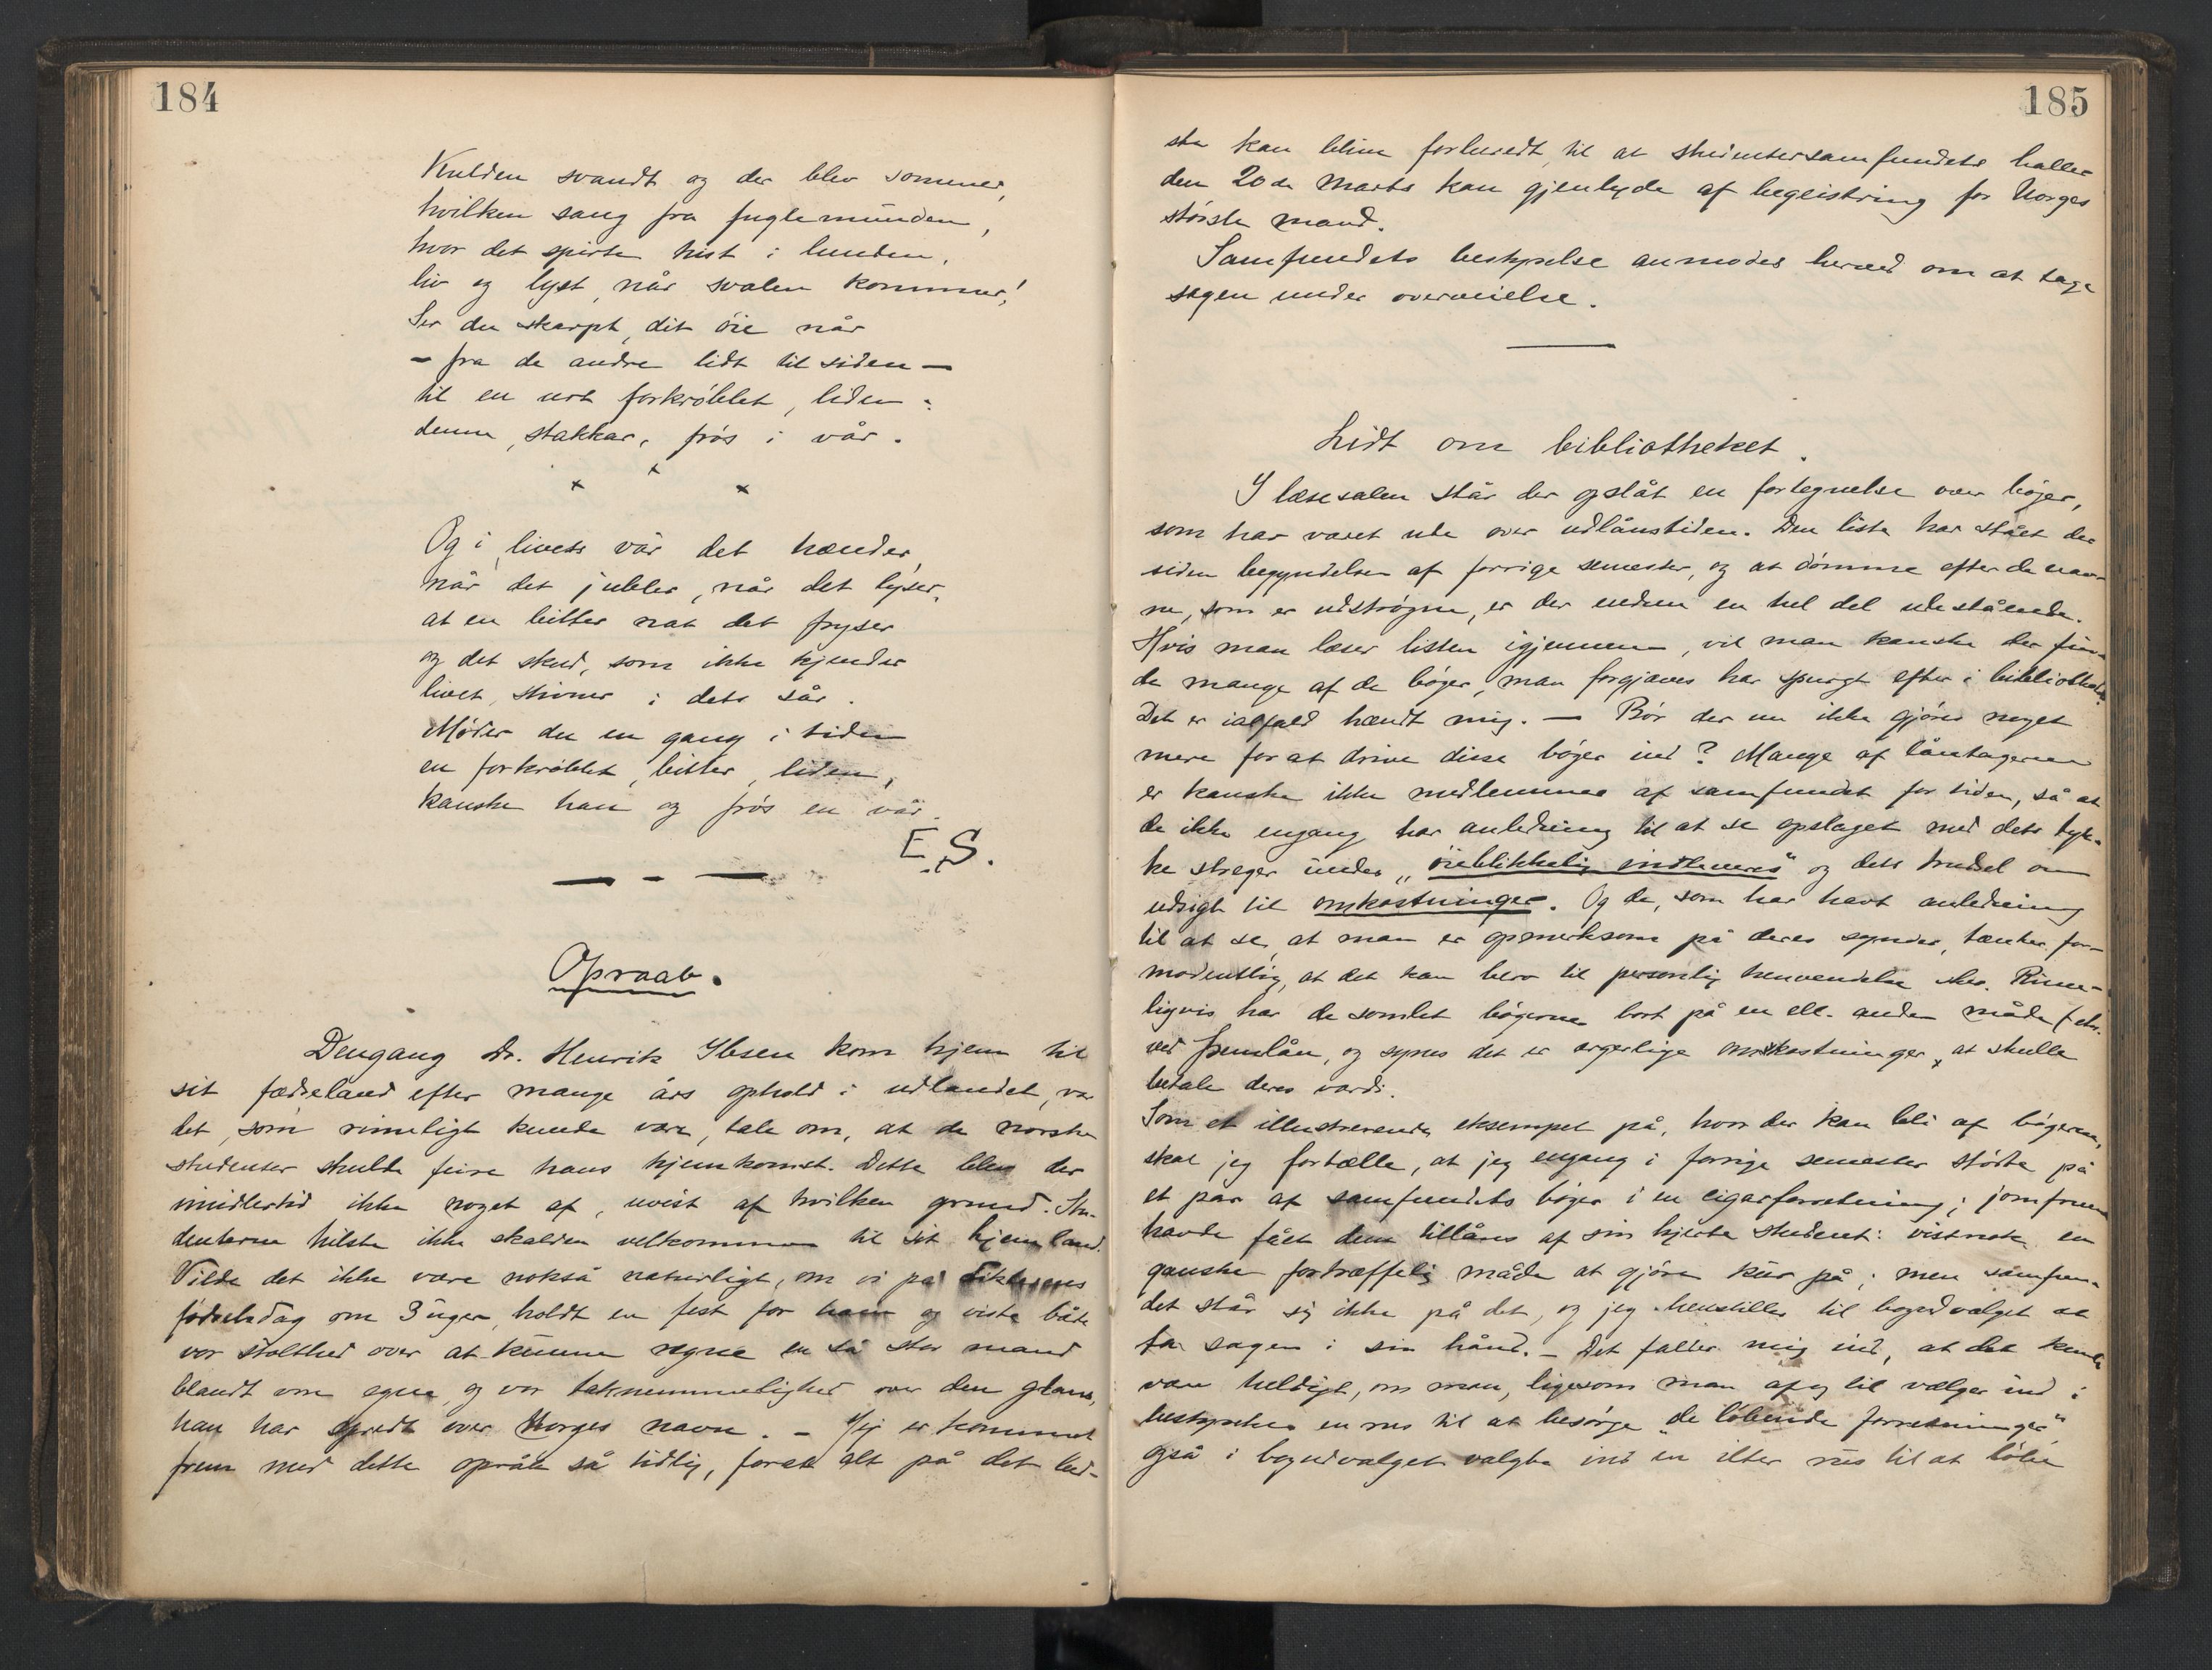 184
Kulden svandt og der blev sommer,
hvilken sang fra fuglemunden,
hvor det spirte hist i lunden,
liv og lyst, når svalen kommer!
Ser du skarpt, dit öie når
– fra de andre lidt til siden –
til en urt forkröblet, liden:
denne, stakkar, frös i vår.
x x x
Og i livets vår det hænder,
når det jubler, når det lyser,
at en bitter nat det fryser
og det skud, som ikke kjender
livet, stivner i dets sår.
Möder du en gang i tiden
en forkröblet, bitter, liden,
kanske han og frös en vår.
E.S.
Opraab.
Dengang Dr. Henrik Ibsen kom hjem til
sit fædreland efter mange års ophold i udlandet, var
det, som rimeligt kunde være, tale om, at de norske
studenter skulde feire hans hjemkomst. Dette blev der
imidlertid ikke noget af, uvist af hvilken grund. Stu-
denterne hilste ikke skalden velkommen til sit hjemland.
Vilde det ikke være nokså naturligt, om vi på digterens
födselsdag om 3 uger, holdt en fest for ham og viste både
vor stolthed over at kunne regne en så stor mand
blandt vore egne, og vor taknemmelighed over den glans,
han har spredt over Norges navn. – Jeg er kommet
frem med dette opråb så tidlig, forat alt på det bed-
185
ste kan blive forberedt til at studentersamfundets haller
den 20de Marts kan gjenlyde af begeistring for Norges
störste mand.
Samfundets bestyrelse anmodes herved om at tage
sagen under overveielse.
Lidt om bibliotheket.
I læsesalen står der opslåt en fortegnelse over böger,
som har været ude over udlånstiden. Den liste har stået der
siden begyndelsen af forrige semester, og at dömme efter de nav-
ne, som er udströgne, er der endnu en hel del udestående.
Hvis man læser listen igjennem, vil man kanske der fin-
de mange af de böger, man forgjæves har spurgt efter i bibliotheket.
Det er ialfald hændt mig. – Bör der nu ikke gjöres noget
mere for at drive disse böger ind? Mange af låntagerne
er kanske ikke medlemmer af samfundet for tiden, så at
de ikke engang har anledning til at se opslaget med dets tyk-
ke streger under „öieblikkelig indleveres“ og dets trudsel om
udsigt til omkostninger. Og de, som har havt anledning
til at se, at man er opmerksom på deres synder, tænker for-
modentlig, at det kan bero til personlig henvendelse sker. Rime-
ligvis har de somlet bögerne bort på en ell. anden måde f. eks.
ved fremlån, og synes det er ærgerlige omkostninger, at skulle
betale deres værdi.
Som et illustrerende eksempel på, hvor der kan bli af bögerne,
skal jeg fortælle, at jeg engang i forrige semester stödte på
et par af samfundets böger i en cigarforretning; jomfruen
havde fået dem tillåns af sin kjære student: vistnok en
ganske fortræffelig måde at gjöre kur på; men samfun-
det står sig ikke på det, og jeg henstiller til bogudvalget at
ta sagen i sin hånd. – Det falder mig ind, at det kunde
være heldigt, om man, ligesom man af og til vælger ind i
bestyrelsen en rus til at besörge „de löbende forretninger“
også i bogudvalget valgte ind en ilter rus til at löbe